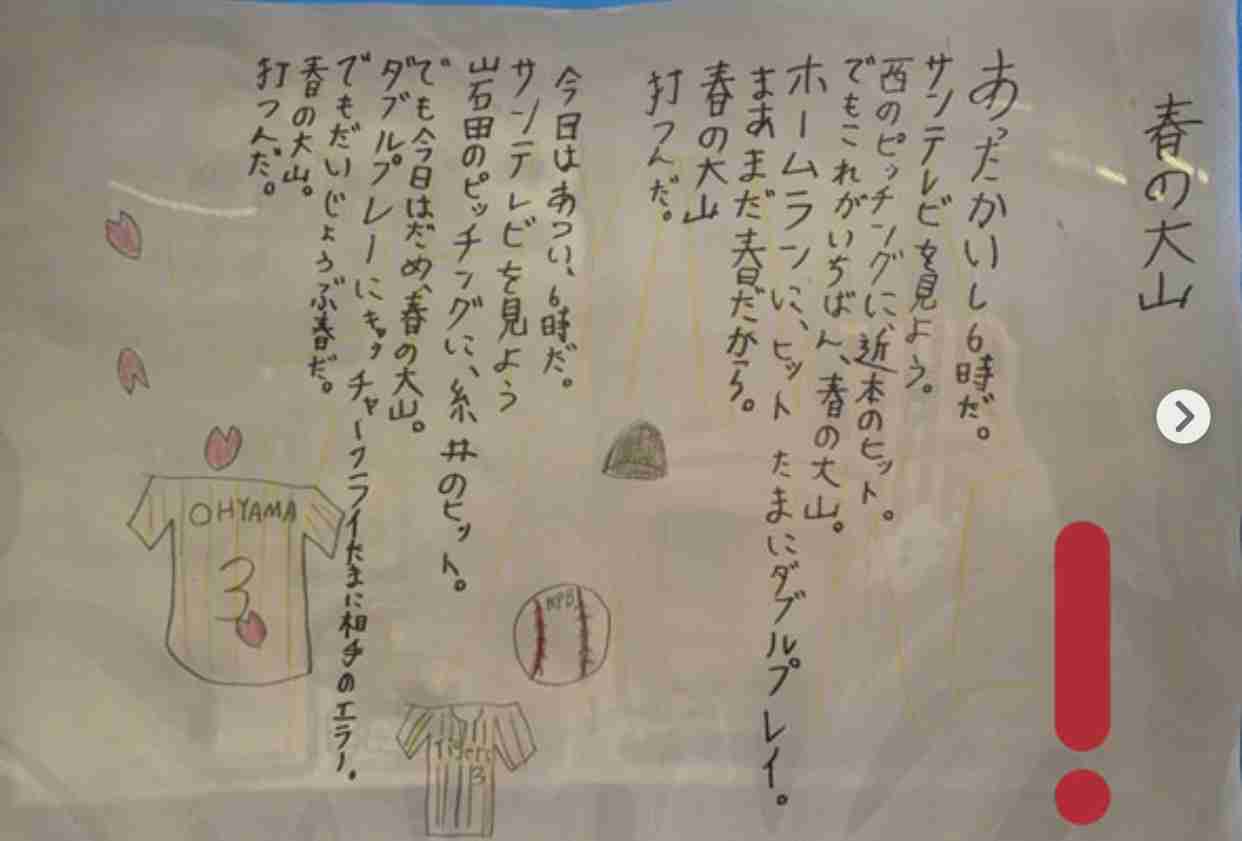 春の大山
あったかいし6時だ。
サンテレビを見よう。
西のピッチングに、近本のヒット。
でもこれがいちばん、春の大山。
ホームランに、ヒット たまにダブルプレイ。
まあまだ春だから。
春の大山
打つんだ。
今日はあつい、6時だ。
サンテレビを見よう
岩田のピッチングに、糸井のヒット。
でも今日はだめ、春の大山。
ダブルプレーにキャッチャーフライたまに相手のエラー。
でもだいじょうぶ春だ。
春の大山。
打つんだ。
OHYAMA
3
NPB
Tigers
3